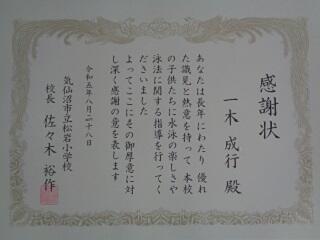 感謝状
一木成行 殿
あなたは長年にわたり 優れ
た識見と熱意を持って 本校
の子供たちに水泳の楽しさや
泳法に関する指導を行ってく
ださいました
よってここにその御厚意に対
し深く感謝の意を表します
令和五年八月二十八日
気仙沼市立松岩小学校
校長 佐々木 裕作